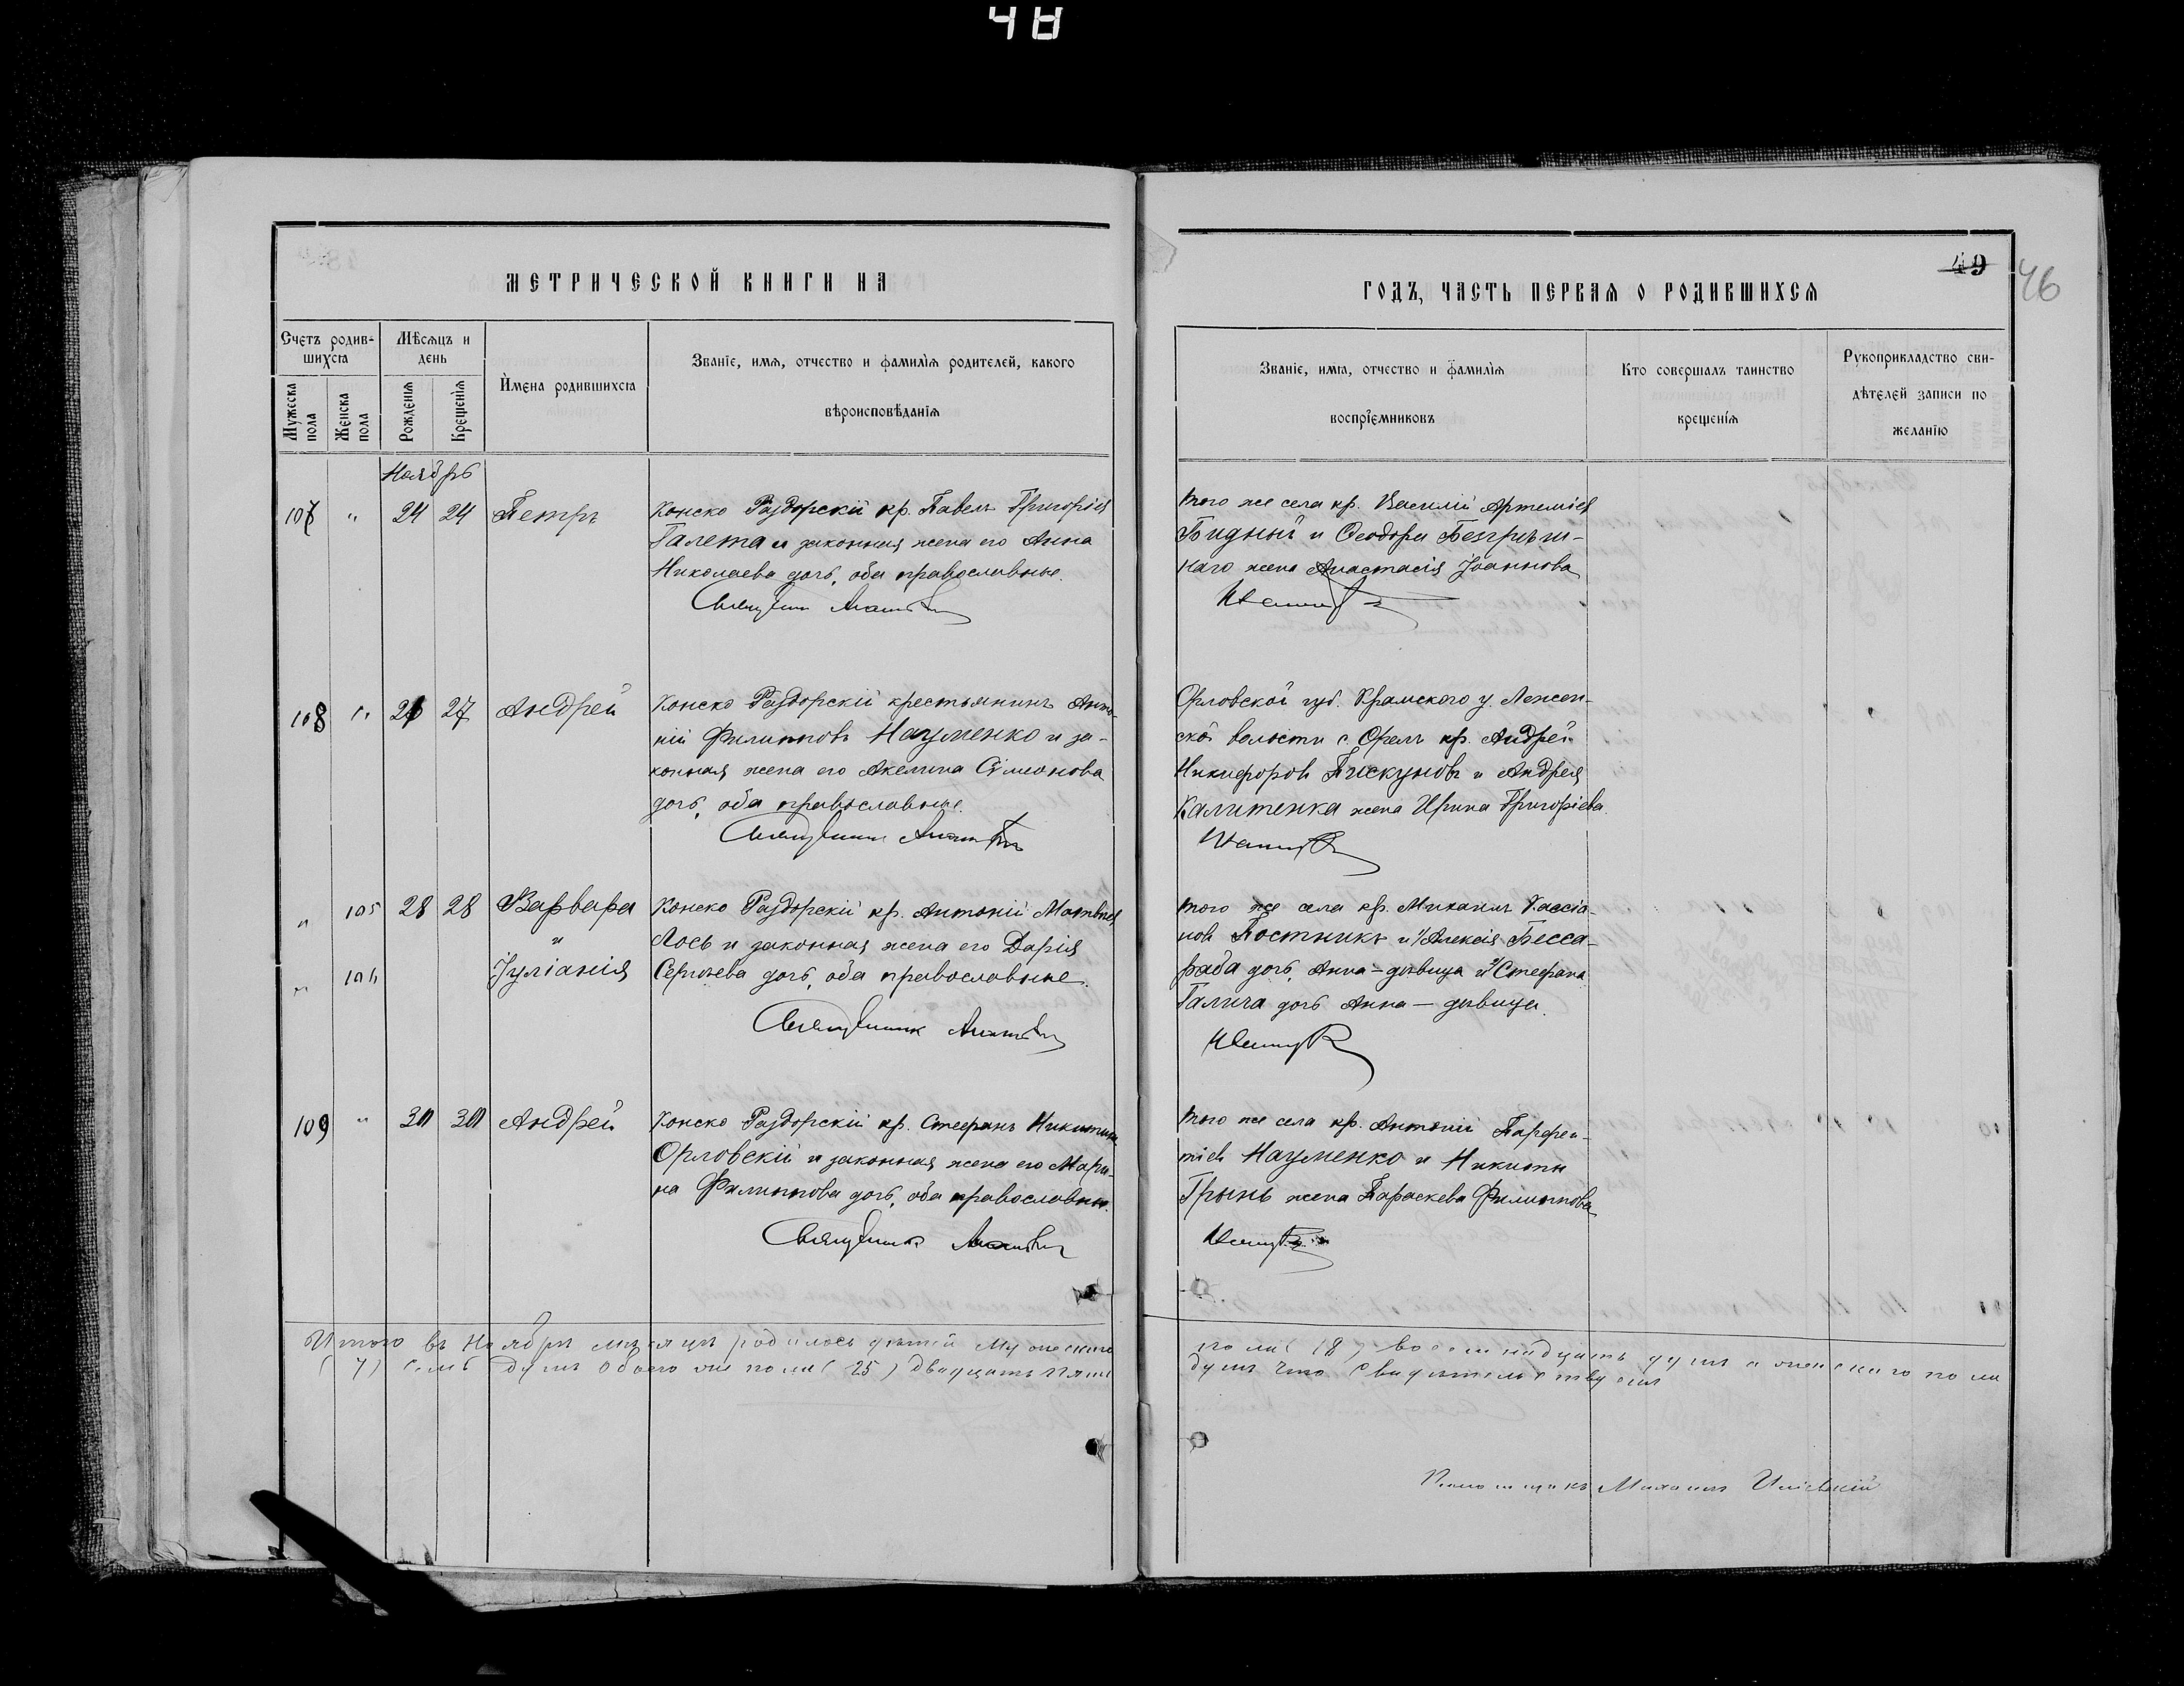 48
МЕТРИЧЕСКОЙ КНИГИ НА
Счетъ родив-
шихся
Мѣсяцъ и
день
Имена родившихся
Званіе, имя, отчество и фамилія родителей, какого
вѣроисповѣданія
Мужеска
пола
Женска
пола
Рожденія
Крещенія
Ноябрь
107 " 24 24 Петръ
Конско Раздорскій кр. Павелъ Григоріев
Галета и законная жена его Анна
Николаева дочь, оба православные.
Священник
108 " 26 27 Андрей
Конско Раздорскій крестьянинъ Анто-
ній Филипповъ Науменко и за-
конная жена его Акелина Симеонова
дочь, оба православные.
Священник
" 105 28 28 Варвара
и
" 106 Іуліанія
Конско Раздорскій кр. Антоній Матвѣев
Лось и законная жена его Дарія
Сергѣева дочь, оба православные.
Священник
109 " 30 30 Андрей
Конско Раздорскій кр. Стефанъ Никитинъ
Орловскій и законная жена его Мари-
на Филиппова дочь, оба православные.
Священник
Итого въ Ноябрѣ мѣсяцѣ родилось дѣтей мужескаго
(7) семь душъ обоего же пола (25) двадцать пять
49
46
ГОДЪ, ЧАСТЬ ПЕРВАЯ О РОДИВШИХСЯ
Званіе, имя, отчество и фамилія
воспріемниковъ
Кто совершалъ таинство
крещенія
Рукоприкладство сви-
дѣтелей записи по
желанію
того же села кр. Василій Артеміев
Бидный и Ѳеодора Безгрѣш-
наго жена Анастасія Іоаннова
Орловской губ. у.
ской волости с. Орелъ кр. Андрей
Никифоровъ Пискуновъ и Андрея
Калитенка жена Ирина Григоріева.
того же села кр. Михаилъ Кассіа-
новъ Постникъ и 1/ Алексія Бесса-
раба дочь, Анна - дѣвица и 2/ Стефана
Галича дочь Анна — дѣвица.
того же села кр. Антоній Парфен-
тіевъ Науменко и Никиты
Грынь жена Параскева Филиппова
пола (18) восемнадцать душъ а женскаго пола
душъ что свидѣтельствуемъ
Михаилъ